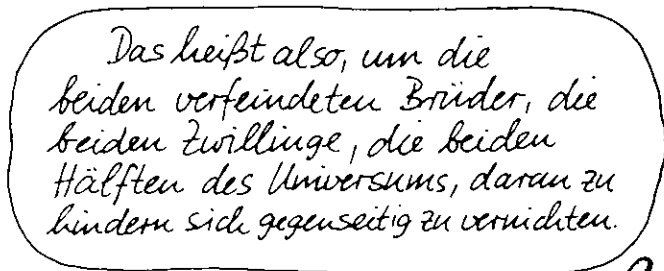 Das heißt also, um die
beiden verfeindeten Brüder, die
beiden Zwillinge, die beiden
Hälften des Universums, daran zu
hindern sich gegenseitig zu vernichten.